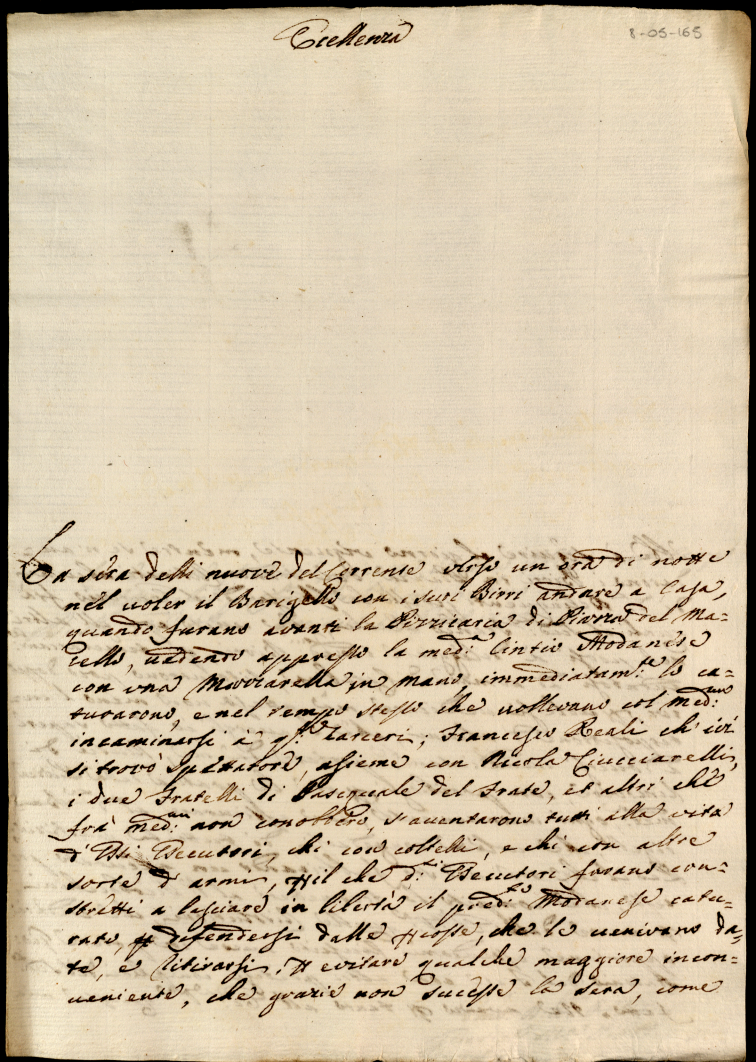 Eccellenza
8-05-165
La sera delli nuove del Corrente verso un ora di notte
nel voler il Barigello con i suoi Birri andare a Casa,
quando furano avanti la Pizzicaria di Piazza del Ma=
cello, vedendo appresso la med.ª Cintio Modanese
con una Mocciarella in mano, immediatam.te lo ca=
turarono, e nel tempo stesso che vollevano col med.mo
incaminarsi à q.ste Carceri; Francesco Reali che ivi
si trovò spettatore, assieme con Nicola Ciucciarelli,
i due Fratelli di Pasquale del Frate, et altri che
frà med.mi non conobbero, s'aventarono tutti alla vita
d'Essi Essecutori, chi con coltelli, e chi con altre
sorte d'armi, p il che d.ti Essecutori furano con=
stretti a lasciare in libertà il pred.to Modanese catu=
rato, p difendersi dalle pcosse, che le venivano da=
te, e ritirarsi, p evitare qualche maggiore incon=
veniente, che grazie non sucesse la sera, come